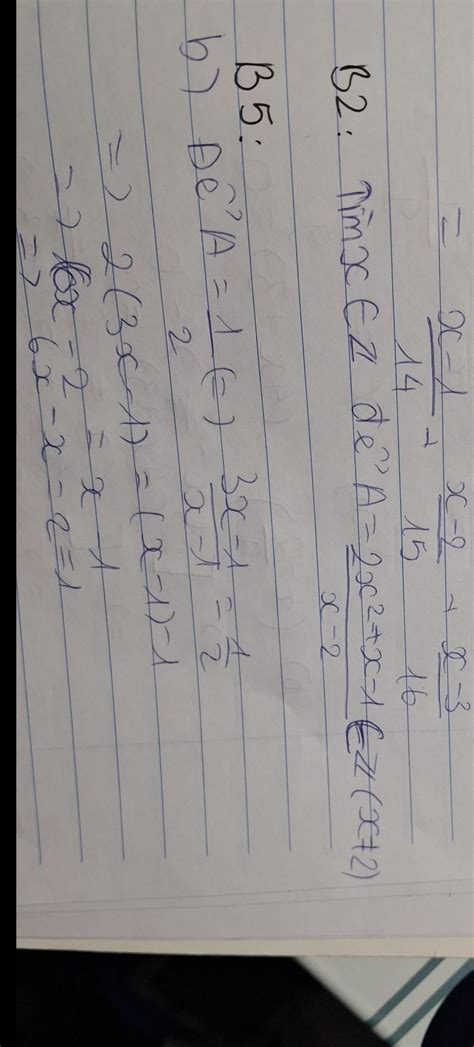 = x-1/14 + x-2/15 + x-3/16
B2: Tìm x ∈ Z để A = 2x²+x-1/x-2 ∈ Z (x≠2)
B5:
b) Để A = 1/2 (=) 3x-1/x-1 = 1/2
=> 2(3x-1) = (x-1)-1
=> 6x - 2 = x 1
=> 6x - x - 2 = 1